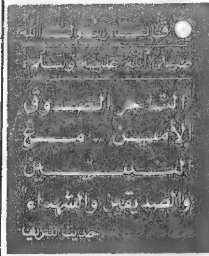 قال رسول الله
صلى الله عليه وسلم :
التاجر الصدوق
الأمين .. مع
النبيين
والصديقين والشهداء
حديث شريف